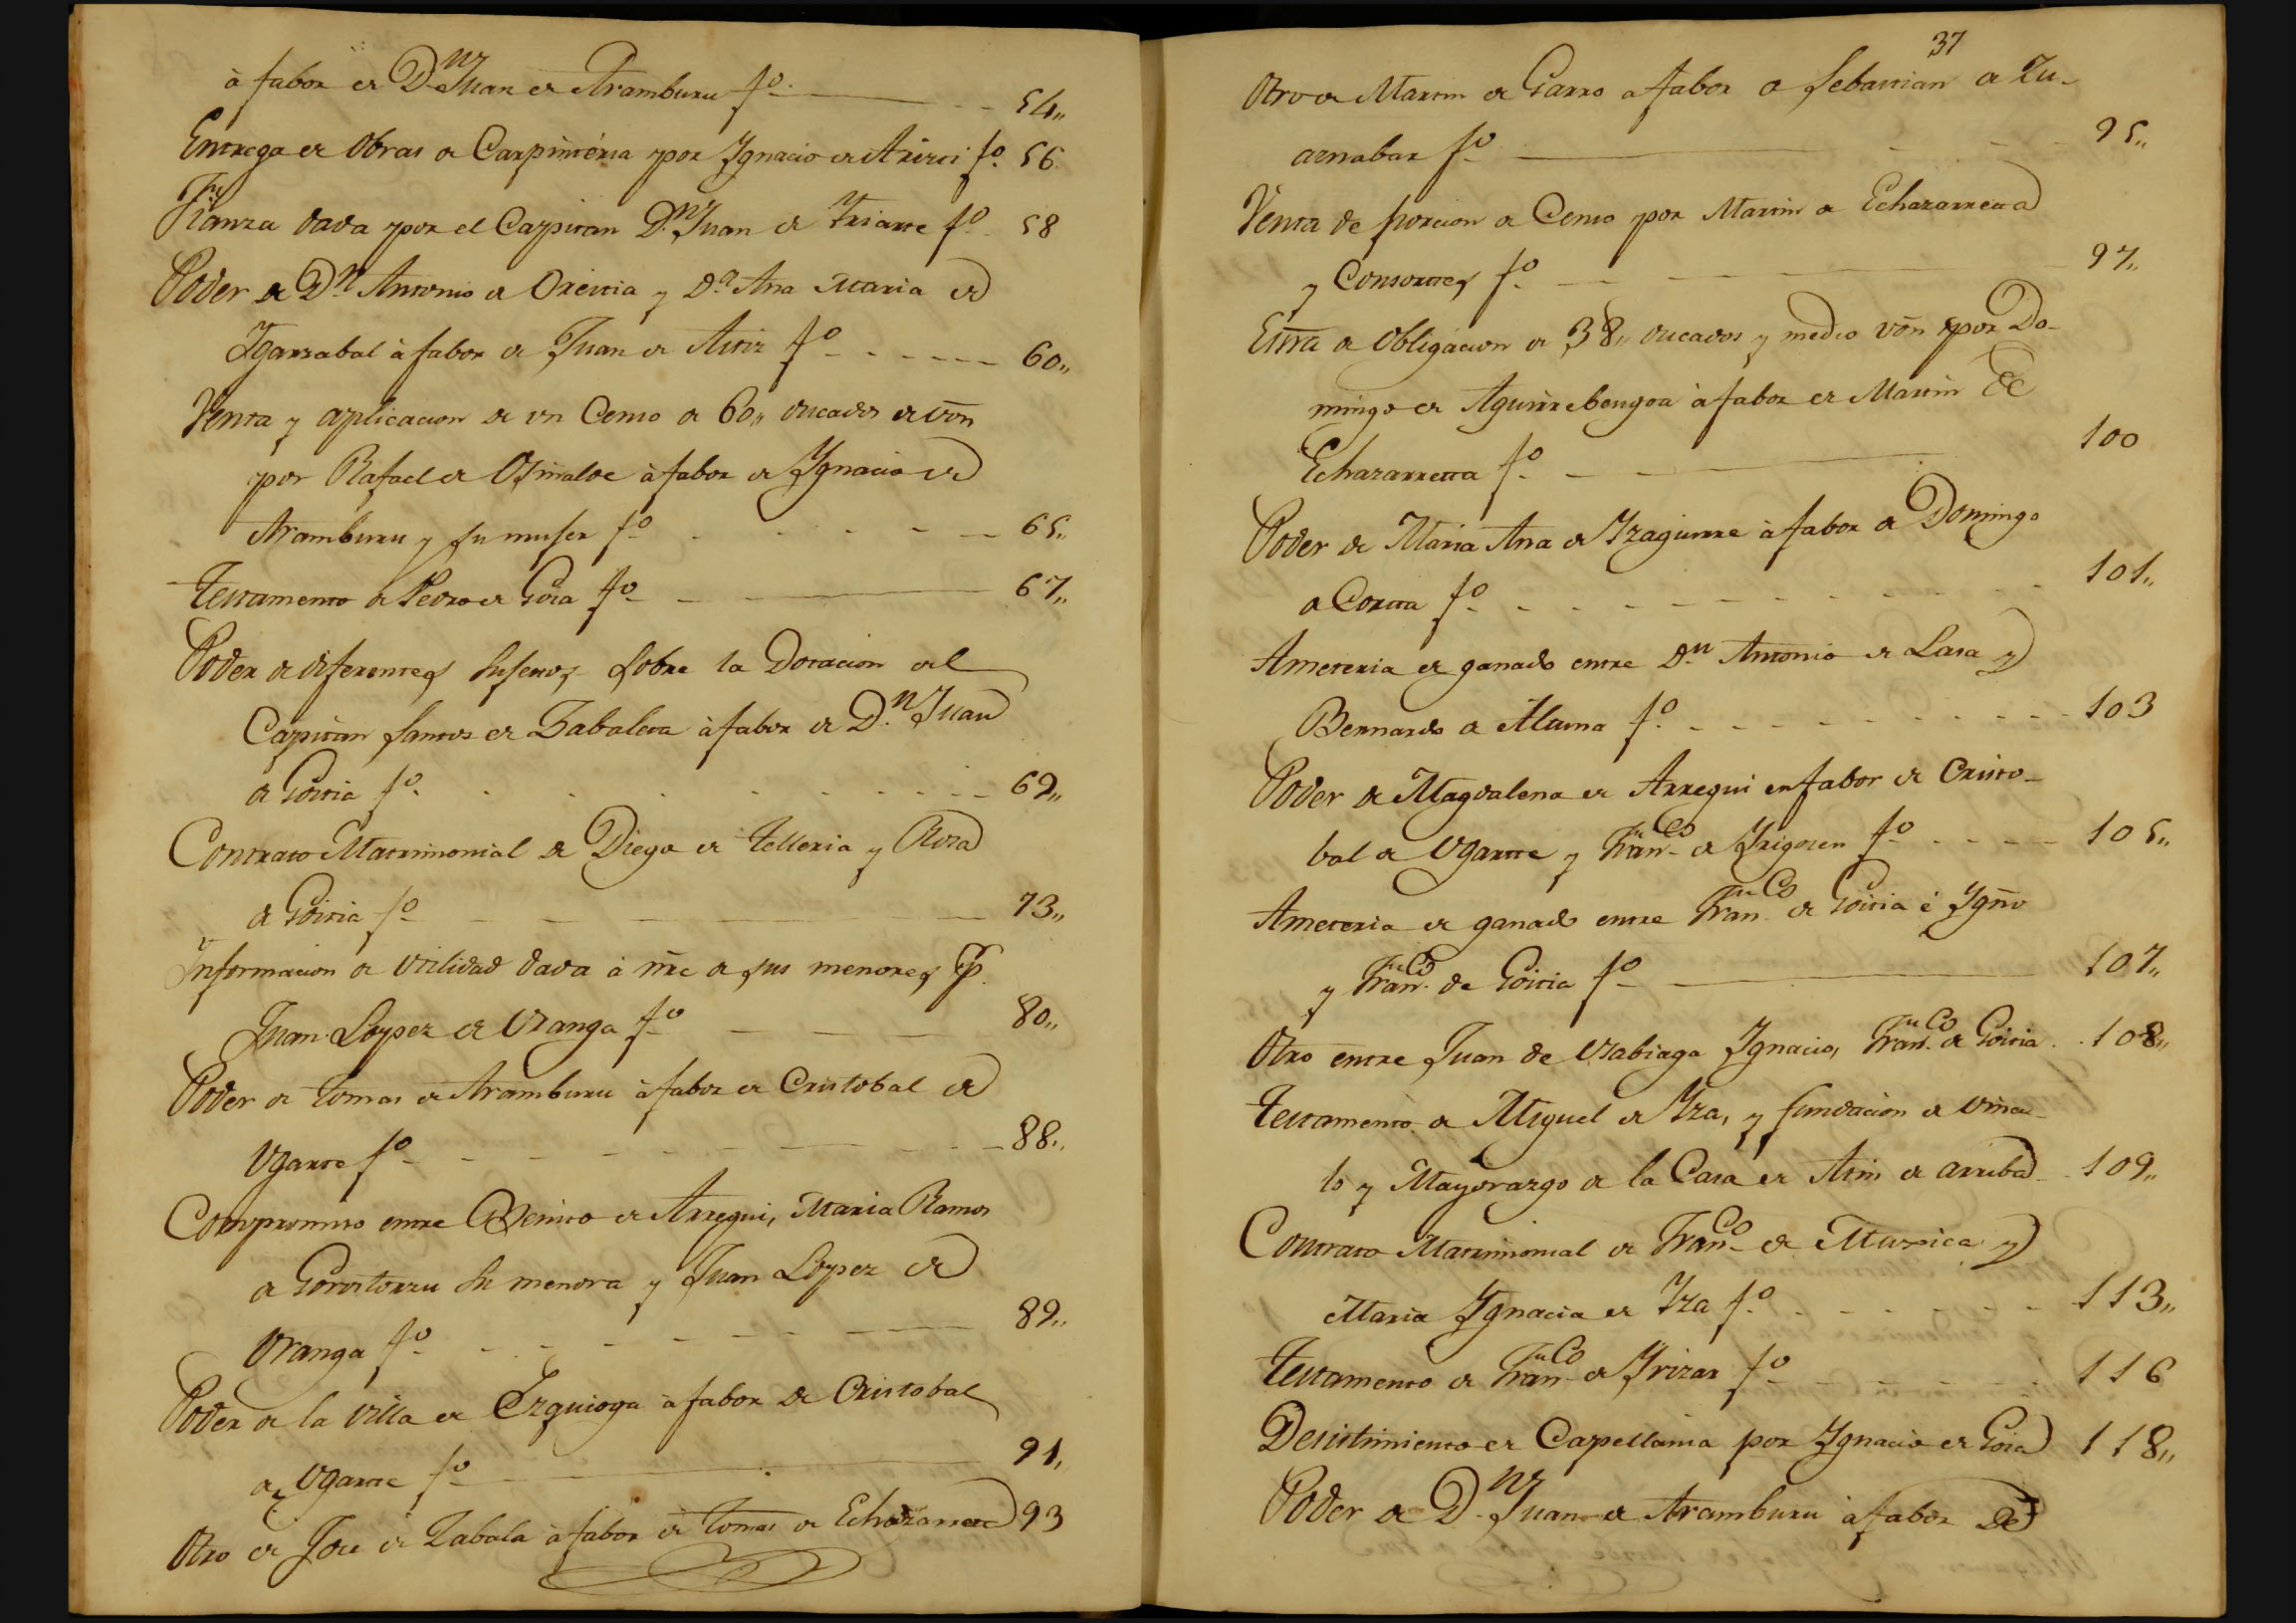 à fabor de D.n Juan de Aramburu f.o 54,,
Entrega de Obras de Carpinteria por Ygnacio de f.o 56
Fianza dada por el Capitan D.n Juan de Yriarte f.o 58
Poder de D.n Antonio de Oreitia y D.a Ana Maria de
Ygarzabal à fabor de Juan de f.o 60,,
Venta y aplicacion de vn Censo de 60,, ducados de von
por Rafael de Osinalde à fabor de Ygnacio de
Aramburu y su muger f.o 65,,
Testamento de Pedro de Goia f.o 67,,
Poder de diferentes sugetos sobre la Dotacion del
Capitan Santos de Zabaleta à fabor de D.n Juan
de Goitia f.o 69,,
Contrato Matrimonial de Diego de Telleria y Rosa
de Goitia f.o 73,,
Informacion de vtilidad dada à nre de sus menores p.
Juan Lopez de Vranga f.o 80,,
Poder de Tomas de Aramburu à fabor de Cristobal de
Vgarte f.o 88,,
Compromiso entre Benito de Arregui, Maria Ramos
de Gorostorzu su menora y Juan Lopez de
Vranga f.o 89,,
Poder de la villa de Ezquioga à fabor de Cristobal
de Vgarte f.o 91,
Otro de Jose de Zabala à fabor de Tomas de Echazarreta 93
37
Otro de Martin de Garro a fabor de Sebastian de Zu-
aznabar f.o 95,,
Venta de porcion de Censo por Martin de Echazarreta
y Consortes f.o 97,,
Esra de Obligacion de 38,, ducados y medio von por Do-
mingo de Aguirrebengoa à fabor de Martin de
Echazarreta f.o 100
Poder de Maria Ana de Yzaguirre à fabor de Domingo
de Corta f.o 101,,
Ameteria de ganado entre D.n Antonio de Lasa y
Bernardo de Aluna f.o 103
Poder de Magdalena de Arregui en fabor de Cristo-
bal de Vgarte y Fran.co de Yrigoien f.o 105,,
Ameteria de ganado entre Fran.co de Goitia è Ygno
y Fran.co de Goitia f.o 107,,
Otro entre Juan de Vsabiaga Ygnacio, Fran.co de Goitia 108,,
Testamento de Miguel de Yza, y fundacion de vincu-
lo y Mayorazgo de la Casa de de arriba 109,,
Contrato Matrimonial de Fran.co de Muxica y
Maria Ygnacia de Yza f.o 113,,
Testamento de Fran.co de Yrizar f.o 116
Desistimiento de Capellania por Ygnacio de Goia 118,,
Poder de D.n Juan de Aramburu à fabor de